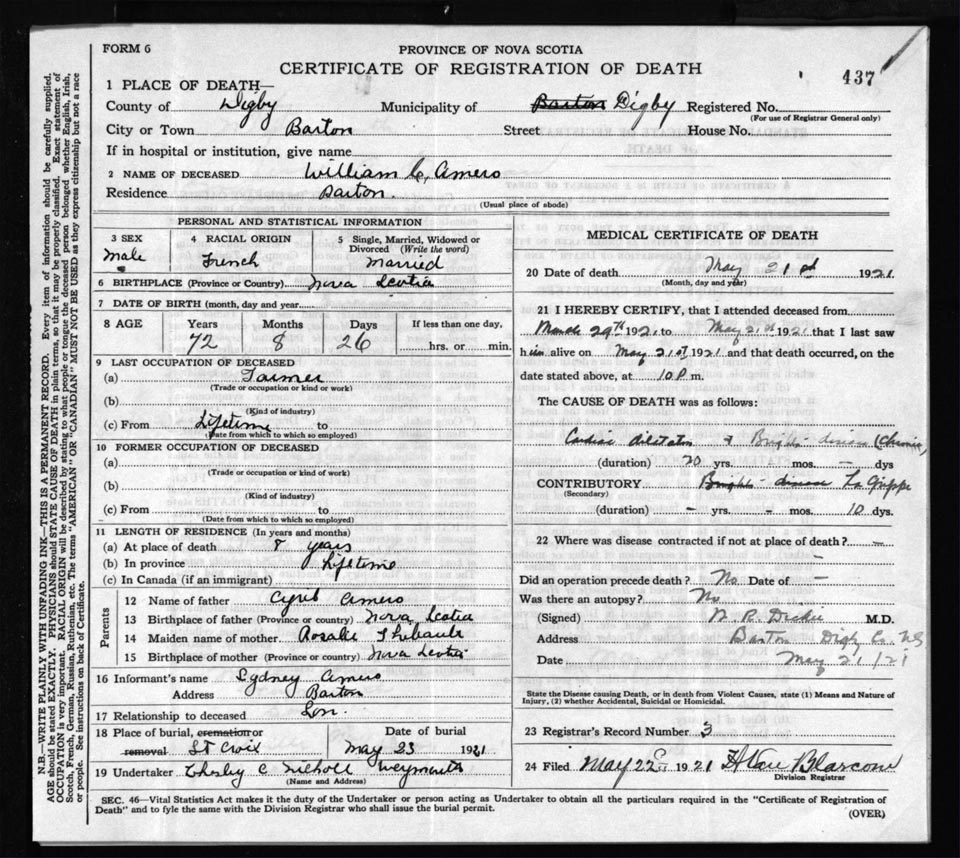 FORM 6
PROVINCE OF NOVA SCOTIA
CERTIFICATE OF REGISTRATION OF DEATH
437
1 PLACE OF DEATH—
County of Digby Municipality of Barton Digby Registered No.
(For use of Registrar General only)
City or Town Barton Street House No.
If in hospital or institution, give name
2 NAME OF DECEASED William C, Amero
Residence Barton
(Usual place of abode)
PERSONAL AND STATISTICAL INFORMATION
3 SEX 4 RACIAL ORIGIN 5 Single, Married, Widowed or Divorced (Write the word)
Male French Married
6 BIRTHPLACE (Province or Country) Nova Scotia
7 DATE OF BIRTH (month, day and year)
8 AGE Years Months Days If less than one day,
72 8 26 hrs. or min.
9 LAST OCCUPATION OF DECEASED
(a) Farmer
(Trade or occupation or kind of work)
(b)
(Kind of industry)
(c) From Lifetime to
(Date from which to which so employed)
10 FORMER OCCUPATION OF DECEASED
(a)
(Trade or occupation or kind of work)
(b)
(Kind of industry)
(c) From to
(Date from which to which so employed)
11 LENGTH OF RESIDENCE (In years and months)
(a) At place of death 8 years
(b) In province Lifetime
(c) In Canada (if an immigrant)
Parents
12 Name of father Amero
13 Birthplace of father (Province or country) Nova Scotia
14 Maiden name of mother Rosalie Thibault
15 Birthplace of mother (Province or country) Nova Scotia
16 Informant's name Sydney Amero
Address Barton
17 Relationship to deceased Son.
18 Place of burial, cremation or removal St Croix
Date of burial May 23 1921
19 Undertaker C Nicholl Weymouth
(Name and Address)
MEDICAL CERTIFICATE OF DEATH
20 Date of death May 21st 1921
(Month, day and year)
21 I HEREBY CERTIFY, that I attended deceased from
March 29th 1921 to May 21st 1921 that I last saw
him alive on May 21st 1921 and that death occurred, on the
date stated above, at 10 P m.
The CAUSE OF DEATH was as follows:
Cardiac dilatation & Brights disease (Chronic)
(duration) 20 yrs. mos. – dys
CONTRIBUTORY Brights disease La Grippe
(Secondary)
(duration) – yrs. – mos. 10 dys.
22 Where was disease contracted if not at place of death? –
Did an operation precede death? No Date of –
Was there an autopsy? No
(Signed) W. R. Dickie M.D.
Address Barton Digby Co NS
Date May 21/21
State the Disease causing Death, or in death from Violent Causes, state (1) Means and Nature of
Injury, (2) whether Accidental, Suicidal or Homicidal.
23 Registrar's Record Number 3
24 Filed May 22 1921
Division Registrar
SEC. 46—Vital Statistics Act makes it the duty of the Undertaker or person acting as Undertaker to obtain all the particulars required in the "Certificate of Registration of
Death" and to fyle the same with the Division Registrar who shall issue the burial permit.
(OVER)
N.B.—WRITE PLAINLY WITH UNFADING INK—THIS IS A PERMANENT RECORD. Every item of information should be carefully supplied.
AGE should be stated EXACTLY. PHYSICIANS should STATE CAUSE OF DEATH in plain terms, so that it may be properly classified. Exact statement of
OCCUPATION is very important. RACIAL ORIGIN will be described by stating to what people or tongue the deceased person belonged whether English, Irish,
Scotch, French, German, Russian, Ruthenian, etc. The terms "AMERICAN" OR "CANADIAN" MUST NOT BE USED as they express citizenship but not a race
or people. See instructions on back of Certificate.